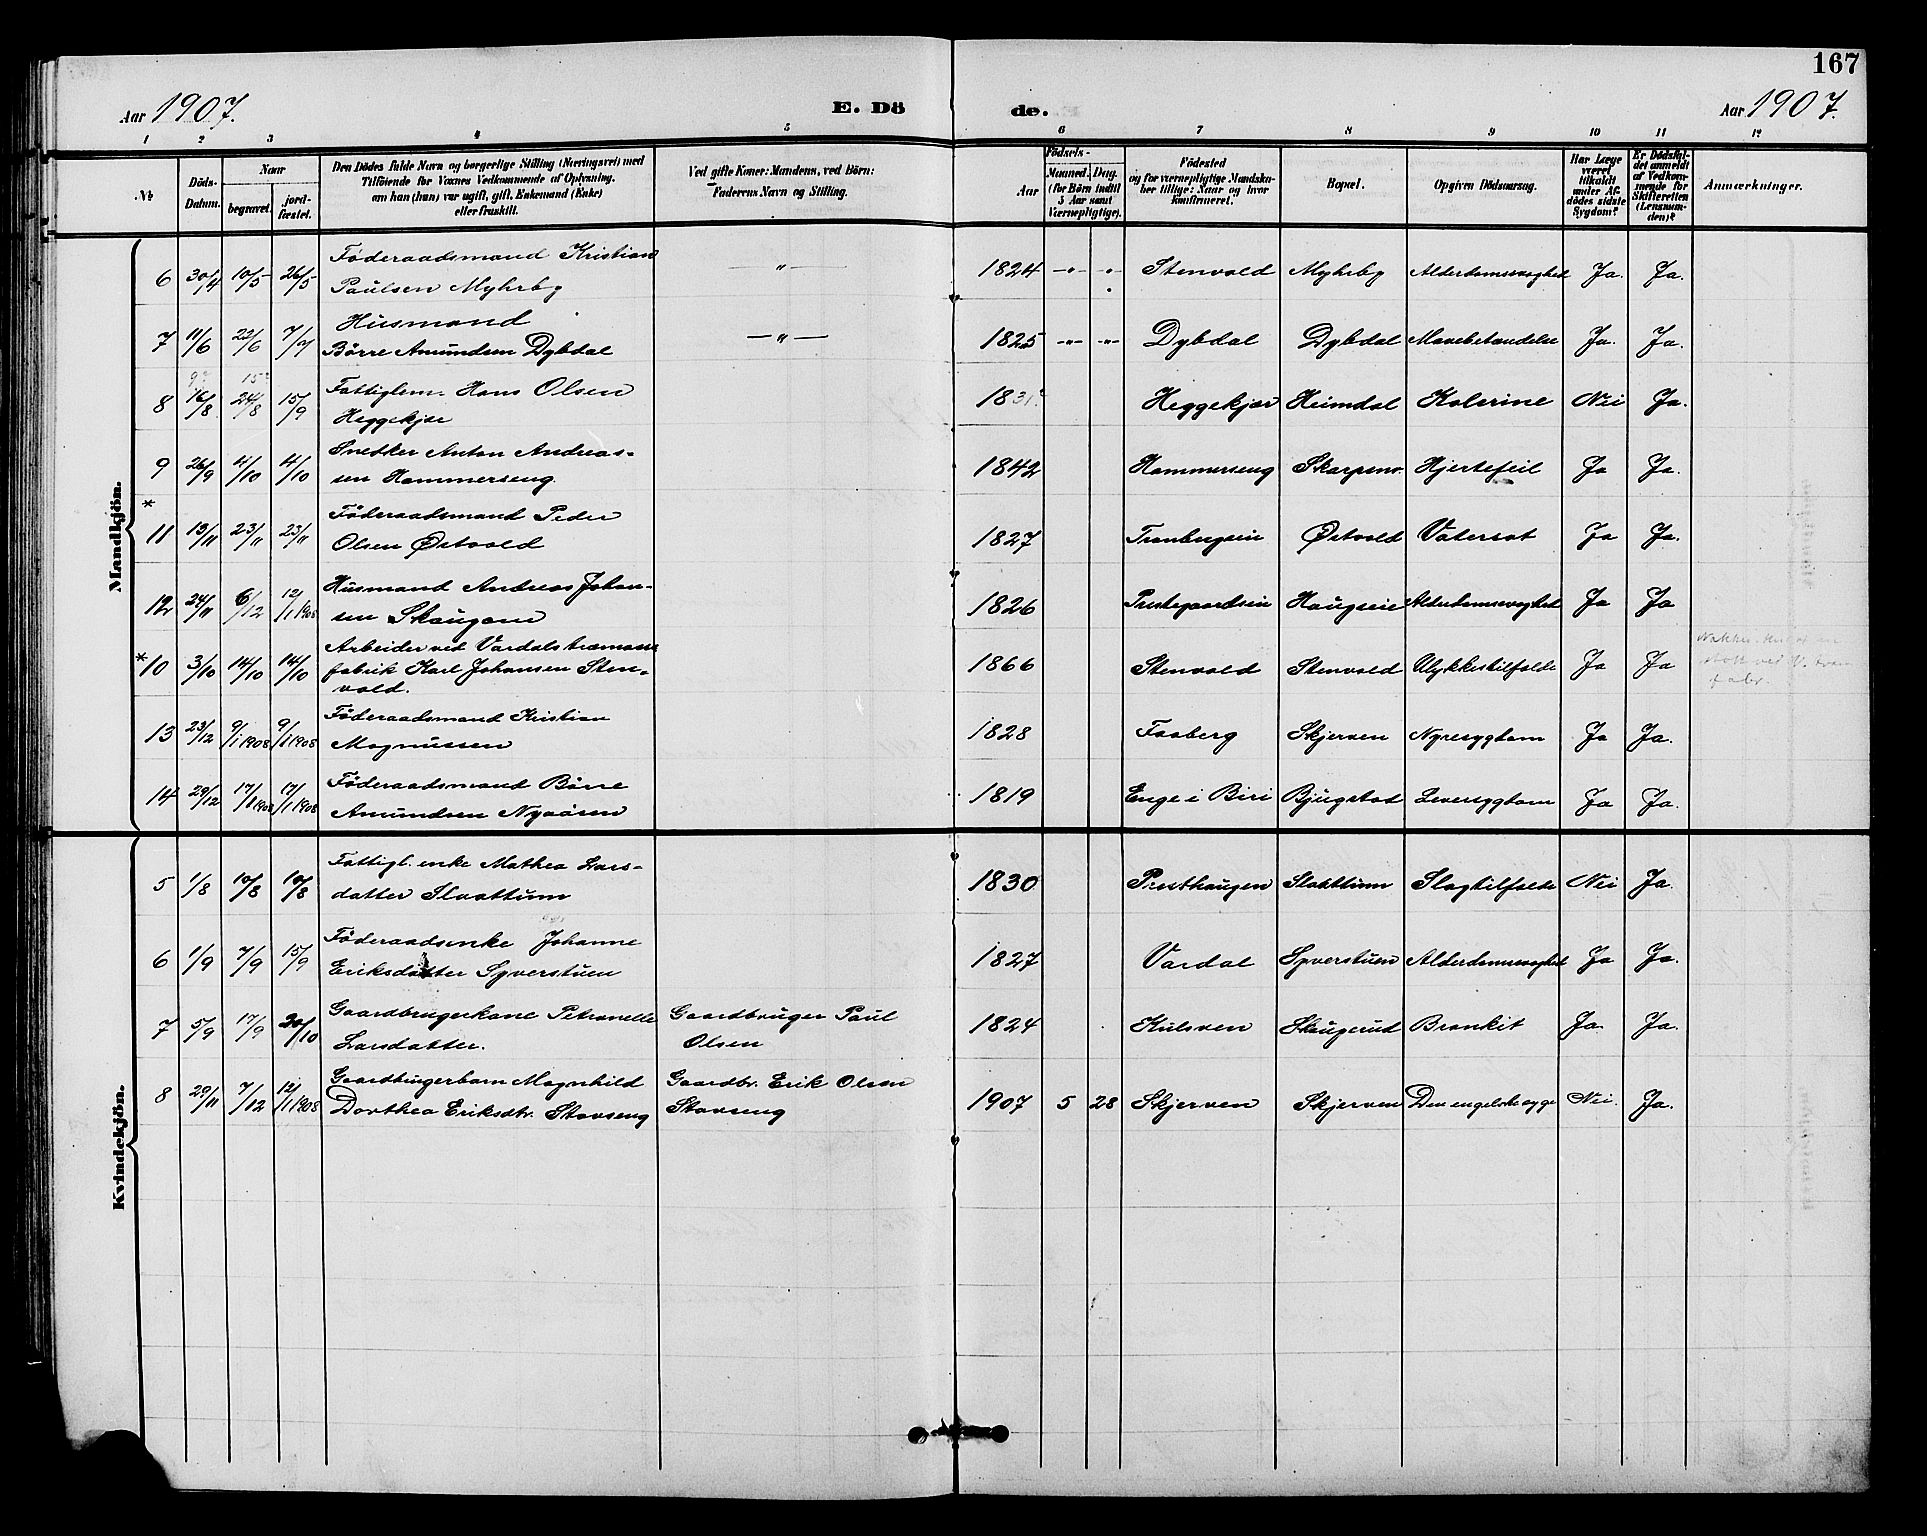 167
Aar 1907. E. Dö de. Aar 1907.
1 2 3 4 5 6 7 8 9 10 11 12
No. Döds-Datum. Naar begravet. jordfæstet. Den Dödes fulde Navn og borgerlige Stilling (Næringsvei) med Tilföiende for Voxnes Vedkommende af Oplysning, om han (hun) var ugift, gift, Enkemand (Enke) eller fraskilt. Ved gifte Koner: Mandens, ved Börn: Faderens Navn og Stilling. Födsels- Aar Maaned. Dag. (for Börn indtil 5 Aar samt Værnepligtige). Födested og for værnepligtige Mandskaber tillige: Naar og hvor konfirmeret. Bopæl. Opgiven Dödsaarsag. Har Læge været tilkaldt under Afdödes sidste Sygdom? Er Dödsfaldet anmeldt af Vedkommende for Skifteretten (Lensmanden)? Anmærkninger.
Mandkjön.
6 30/4 10/5 26/5 Föderaadsmand Kristian Paulsen Myhrby — " — 1824 — " — " Stenvold Myhrby Alderdomssvaghed Ja. Ja.
7 11/6 22/6 7/7 Husmand Börre Amundsen Dybdal — " — 1825 — " — — " — Dybdal Dybdal Mavebetændelse Ja. Ja.
8 9? 16/8 15? 24/8 15/9 Fattiglem. Hans Olsen Heggekjær 1831? Heggekjær Heimdal Kolerine Nei Ja.
9 26/9 4/10 4/10 Snedker Anton Andreassen Hammerseng. 1842 Hammerseng Skarpsno. Hjertefeil Ja Ja.
* 11 19/11 23/11 23/11 Föderaadsmand Peder Olsen Østvold 1827 Østvold Vatersot Ja Ja.
12 24/11 6/12 12/1 1908 Husmand Andreas Johansen Skaugom 1826 Prestegaardseie Haugseie Alderdomssvaghed Ja Ja
* 10 3/10 14/10 14/10 Arbeider ved Vardals træmassefabrik Karl Johansen Stenvold. 1866 Stenvold Stenvold Ulykkestilfælde Ja Ja
13 23/12 9/1 1908 9/1 1908 Föderaadsmand Kristian Magnussen 1828 Faaberg Skjerven Nyresygdom Ja Ja.
14 29/12 17/1 1908 17/1 1908 Föderaadsmand Börre Amundsen Nyaasen 1819 Enge i Biri Bjugstad Leversygdom Ja Ja.
Kvindekjön.
5 1/8 10/8 10/8 Fattigl. enke Mathea Larsdatter Slaattum 1830 Presthaugen Slaattum Slagtilfælde Nei Ja.
6 1/9 7/9 15/9 Föderaadsenke Johanne Eriksdatter Syverstuen 1827 Vardal Syverstuen Alderdomssvaghed Ja Ja.
7 5/9 17/9 20/10 Gaardbrugerkone Petronelle Larsdatter. Gaardbruger Paul Olsen 1824 Kulsven Skaugerud Bronkit Ja. Ja.
8 29/11 7/12 12/1 1908 Gaardbrugerbarn Magnhild Dorthea Eriksdtr. Stavseng Gaardbr. Erik Olsen Stavseng 1907 5 28 Skjerven Skjerven Den engelske syge Nei. Ja.